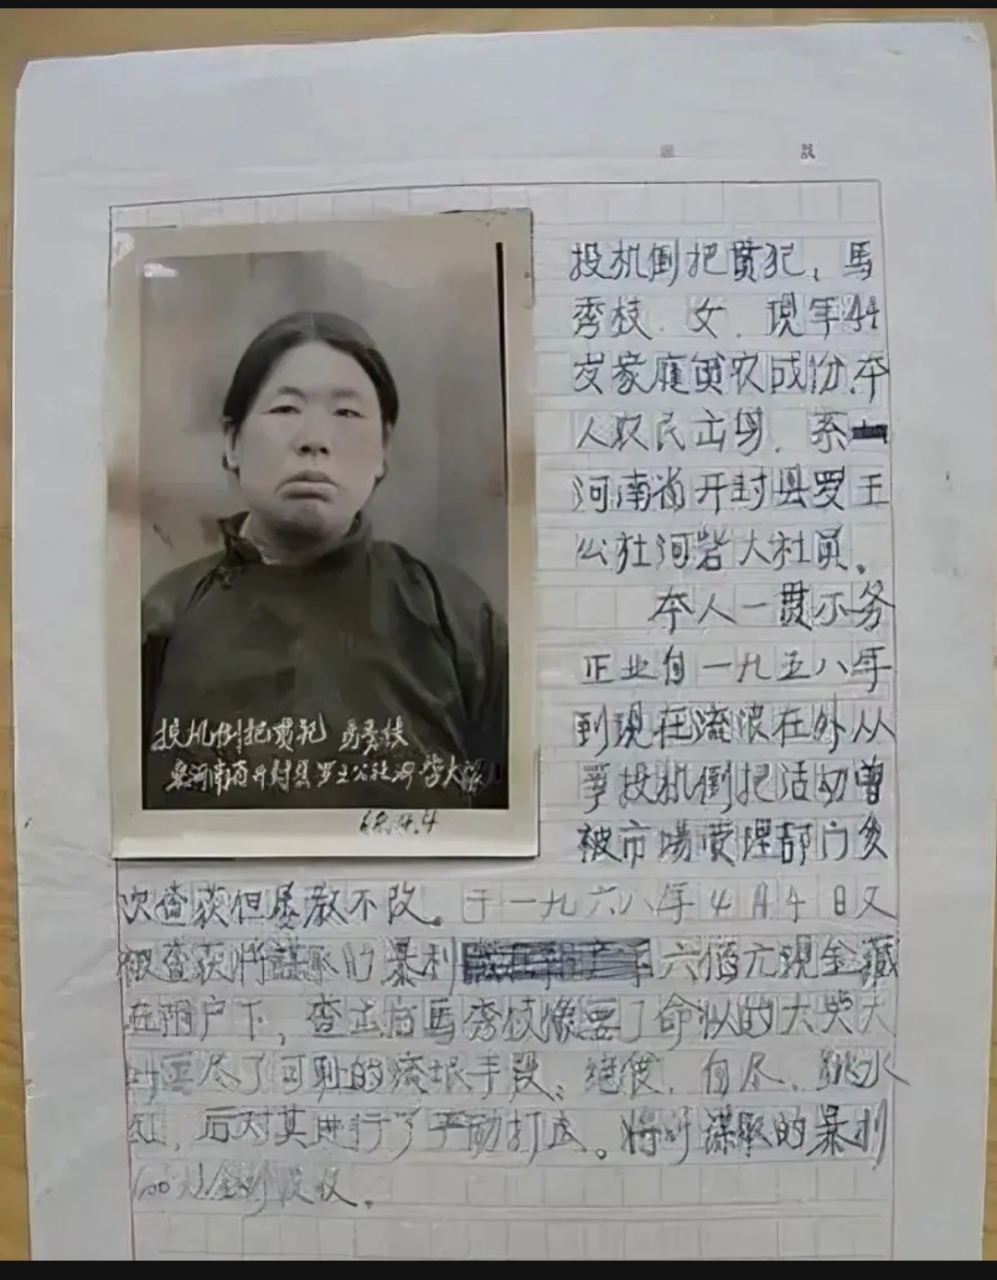 投机倒把贯犯、馬
秀枝. 女. 现年44
岁家庭贫农成份.本
人农民出身. 系
河南省开封县罗王
公社河砦大社员。
本人一贯不务
正业自一九五八年
到现在流浪在外从
事投机倒把活动曾
被市場管理部门多
次查获但屡教不改。于一九六八年4月4日又
被查获将謀取的暴利 六佰元现金藏
在阴户下, 查出后馬秀枝像要了命似的大哭大
尽了可耻的流氓手段、绝食. 自尽. 跳水
缸, 后对其进行了严励打击。将所謀取的暴利
600元全部没收。
投机倒把贯犯 馬秀枝
系河南省开封县罗王公社河砦大队
68.4.4